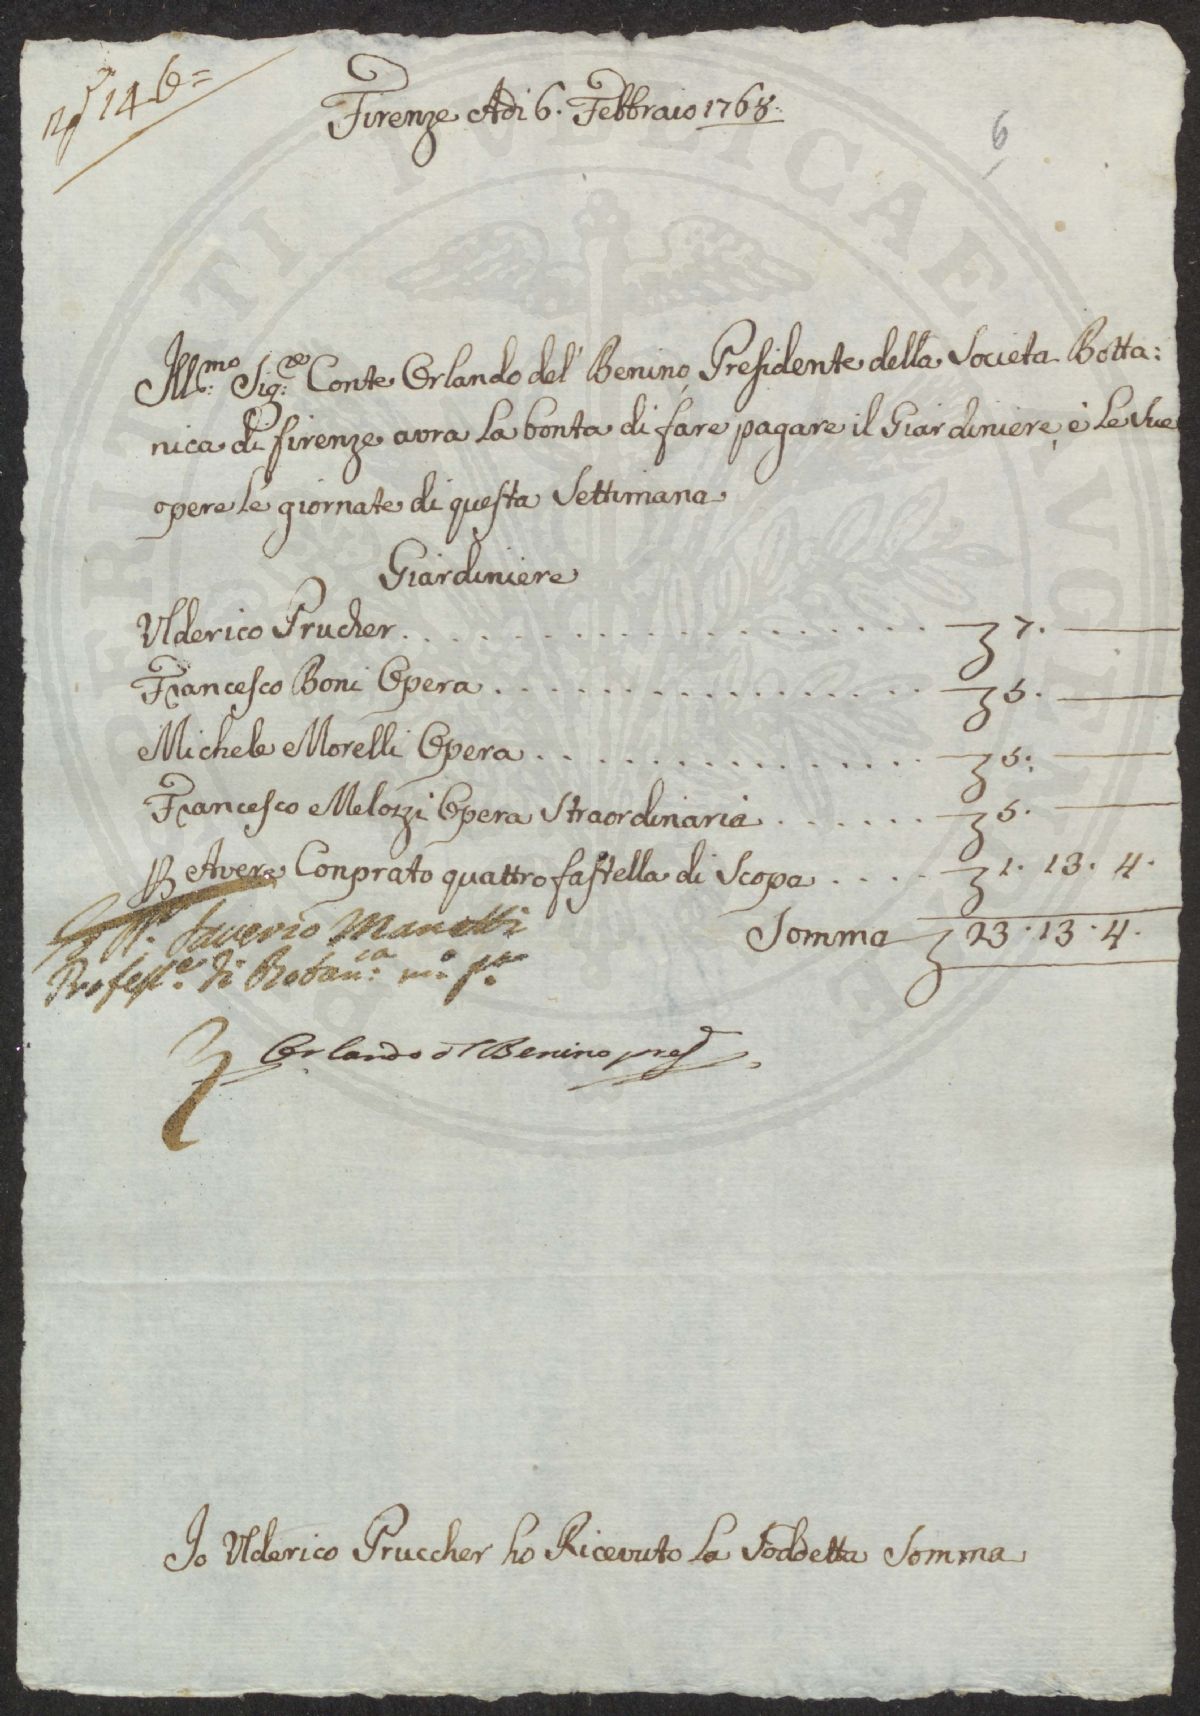 146=
Firenze Adi 6. Febbraio 1768.
6
Ill:mo Sig:re Conte Orlando del' Benino Presidente della Societa Botta:
nica di firenze avra La bonta di fare pagare il Giardiniere, è Le Sue
opere le giornate di questa Settimana
Giardiniere
Ulderico Prucher. . . . . . . . . . . . . . . . . . . . 7. —
Francesco Boni Opera . . . . . . . . . . . . . . . . 5. —
Michele Morelli Opera . . . . . . . . . . . . . . . 5. —
Francesco Melozzi Opera Straordinaria . . . . . . . 5. —
P Aver Conprato quattro fastella di Scopa . . . . . 1. 13. 4.
Somma 23. 13. 4.
Saverio Manetti
Profess:e di Botan:ca m:o p:a
Orlando d Benino pres
Io Ulderico Pruccher ho Ricevuto La Soddetta Somma